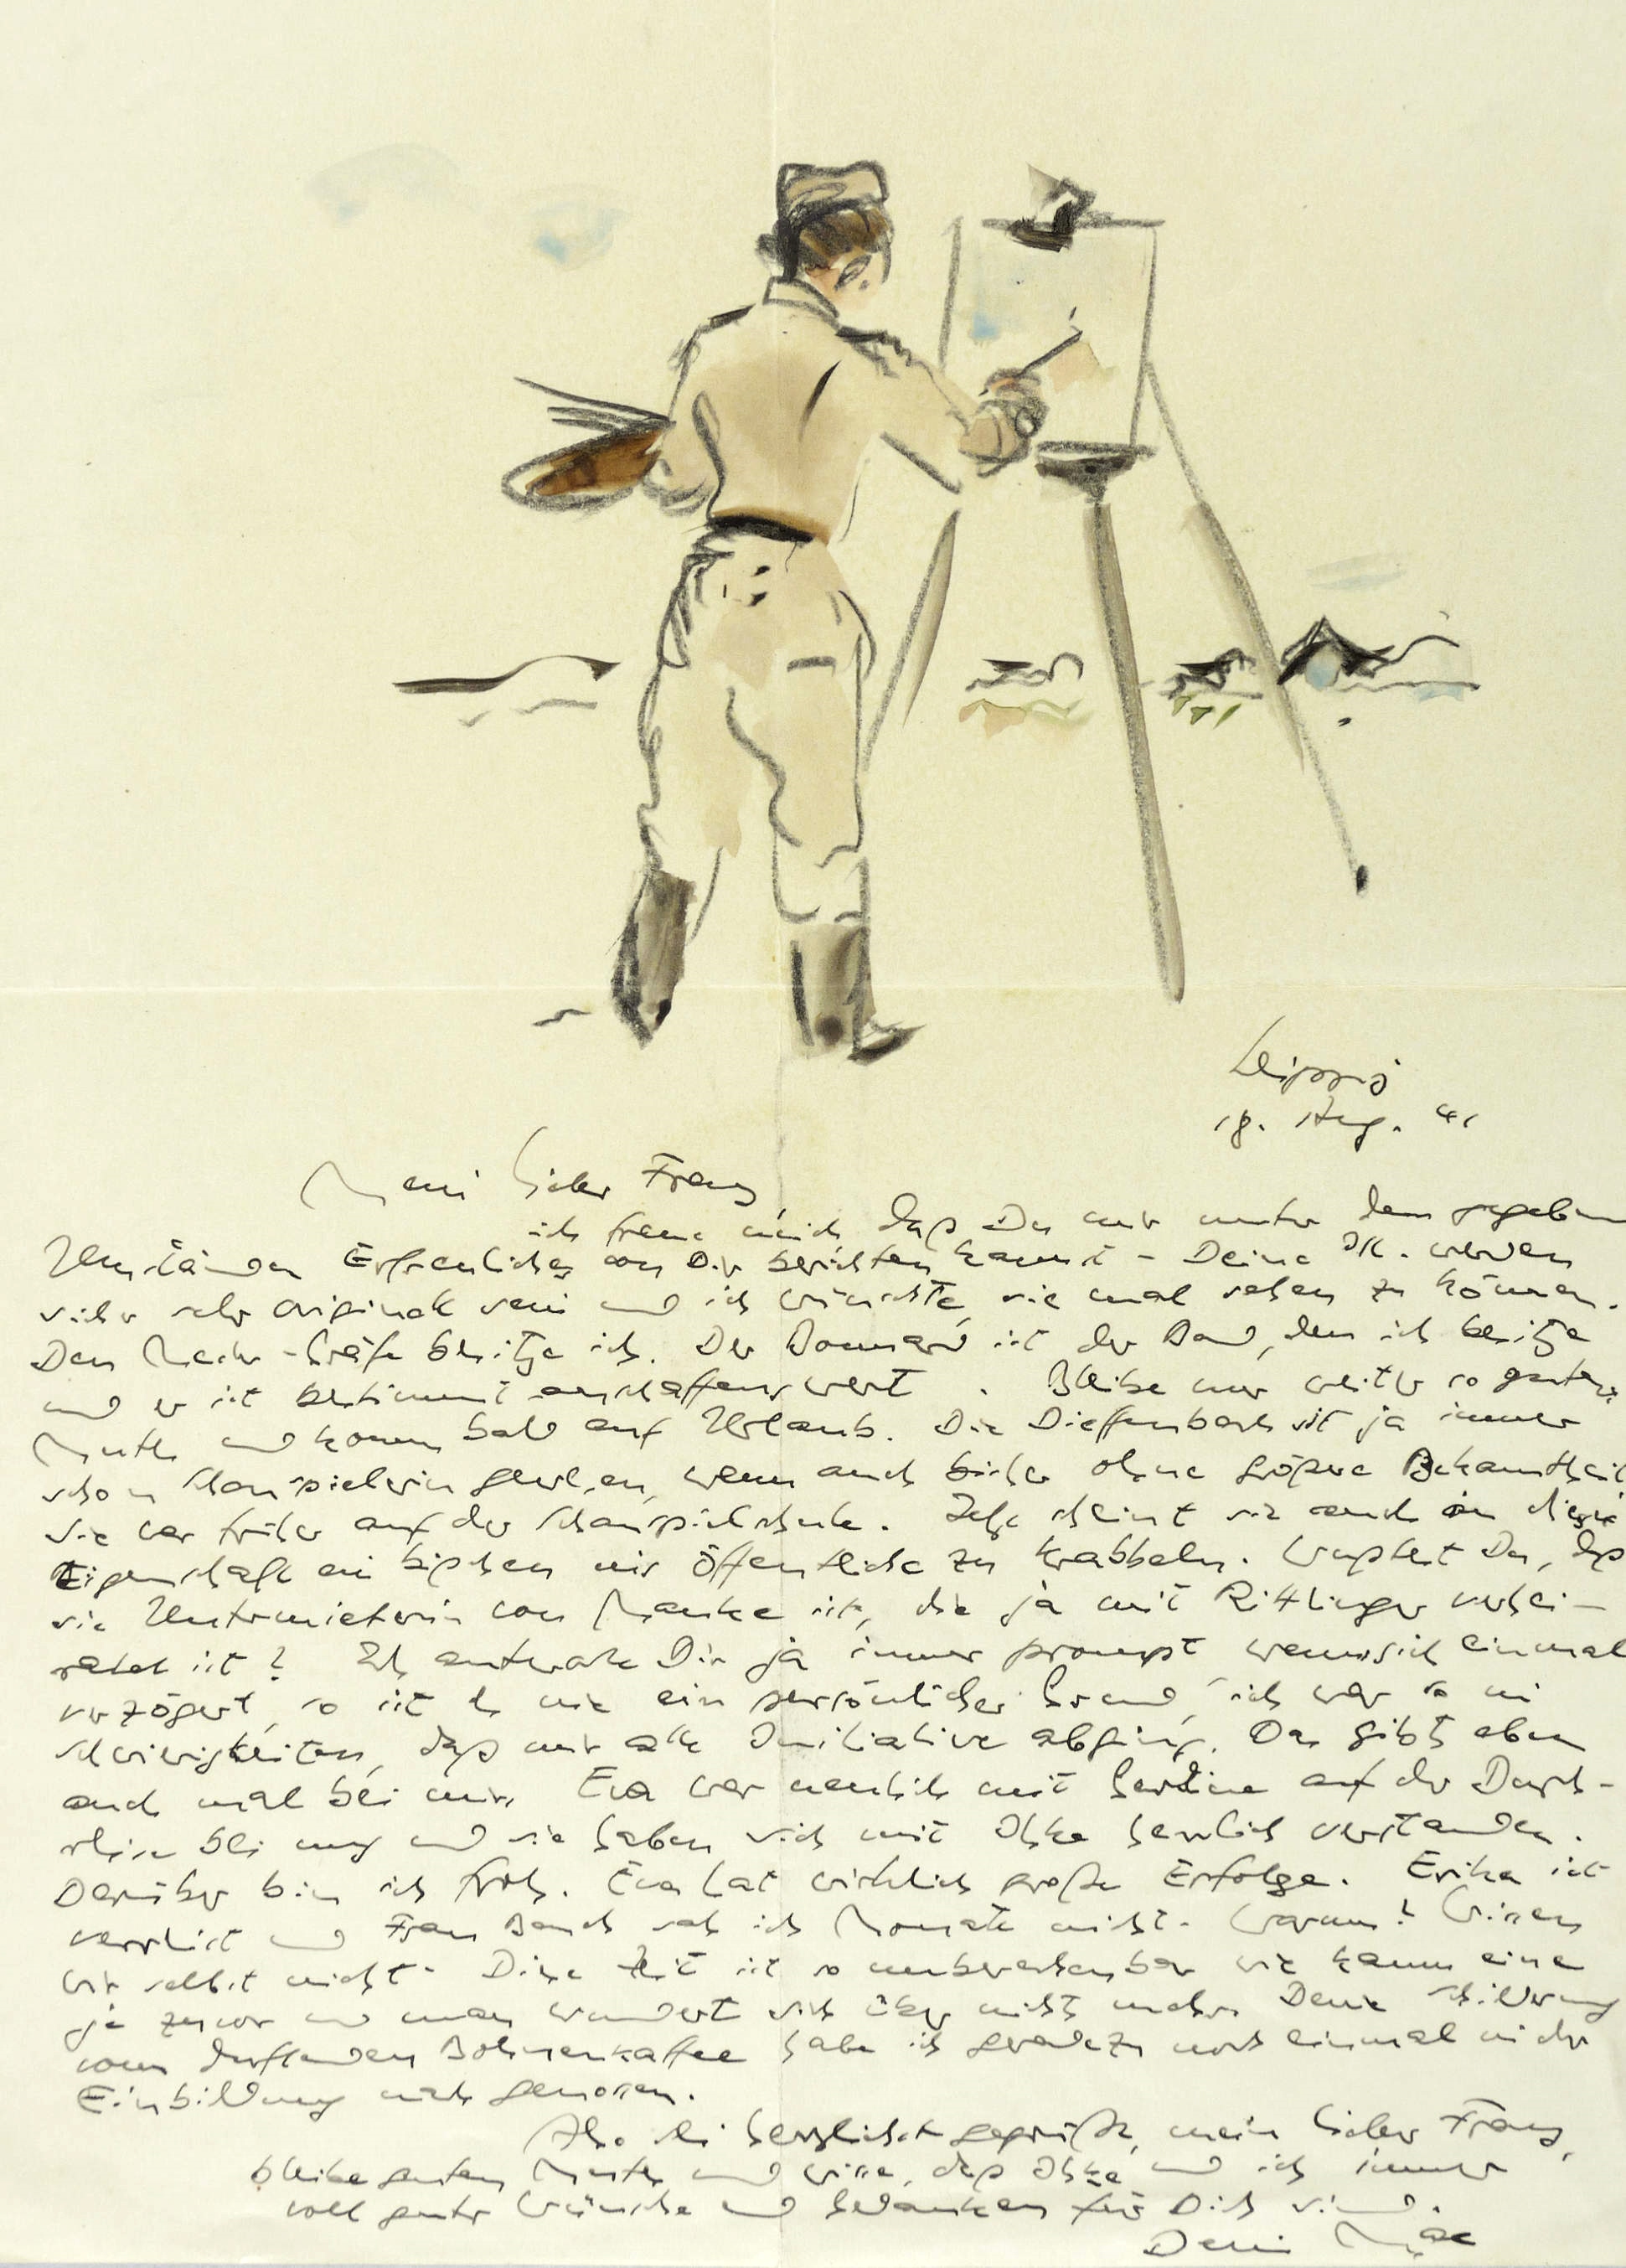 Leipzig
18. Aug. 41
Mein lieber Franz,
ich freue mich, daß Du mir unter den gegebenen
Umständen Erfreuliches von Dir berichten kannst – Deine Ill. werden
sicher sehr originell sein und ich wünschte, sie mal sehen zu können.
Den Meier-Gräfe besitze ich. Der Bonnard ist der Band, den ich besitze
und er ist bestimmt anschaffenswert. Bleibe nur weiter so guten
Muths und komm bald auf Urlaub. Die Dieffenbach ist ja immer
schon Schauspielerin gewesen, wenn auch bisher ohne größere Bekanntheit
Sie war früher auf der Schauspielschule. Jetzt scheint sie auch in dieser
Eigenschaft ein bißchen ins Öffentliche zu krabbeln. Wußtest Du, daß
sie Untermieterin von Manke ist, die ja mit Rittlinger verhei-
ratet ist? Ich antworte Dir ja immer prompt, wenn sich einmal
verzögert, so ist es nie ein persönlicher Grund, ich war so in
Schwierigkeiten, daß mir alle Initiative abging. Das gibt's eben
auch mal bei mir. Eva war neulich mit Gerdine auf der Durch-
reise bei uns und sie haben sich mit Ilske herrlich verstanden.
Darüber bin ich froh. Eva hat wirklich große Erfolge. Erika ist
verreist und Frau sah ich Monate nicht. Warum? Wissen
wir selbst nicht. Diese Zeit ist so unberechenbar wie kaum eine
je zuvor und man wundert sich über nichts mehr. Deine Schilderung
vom duftenden Bohnenkaffee habe ich geradezu noch einmal in der
Einbildung nach genossen.
Also sei herzlichst gegrüßt, mein lieber Franz,
bleibe guten Muths und wisse, daß Ilske und ich immer
voll guter Wünsche und Gedanken für Dich sind.
Dein Max